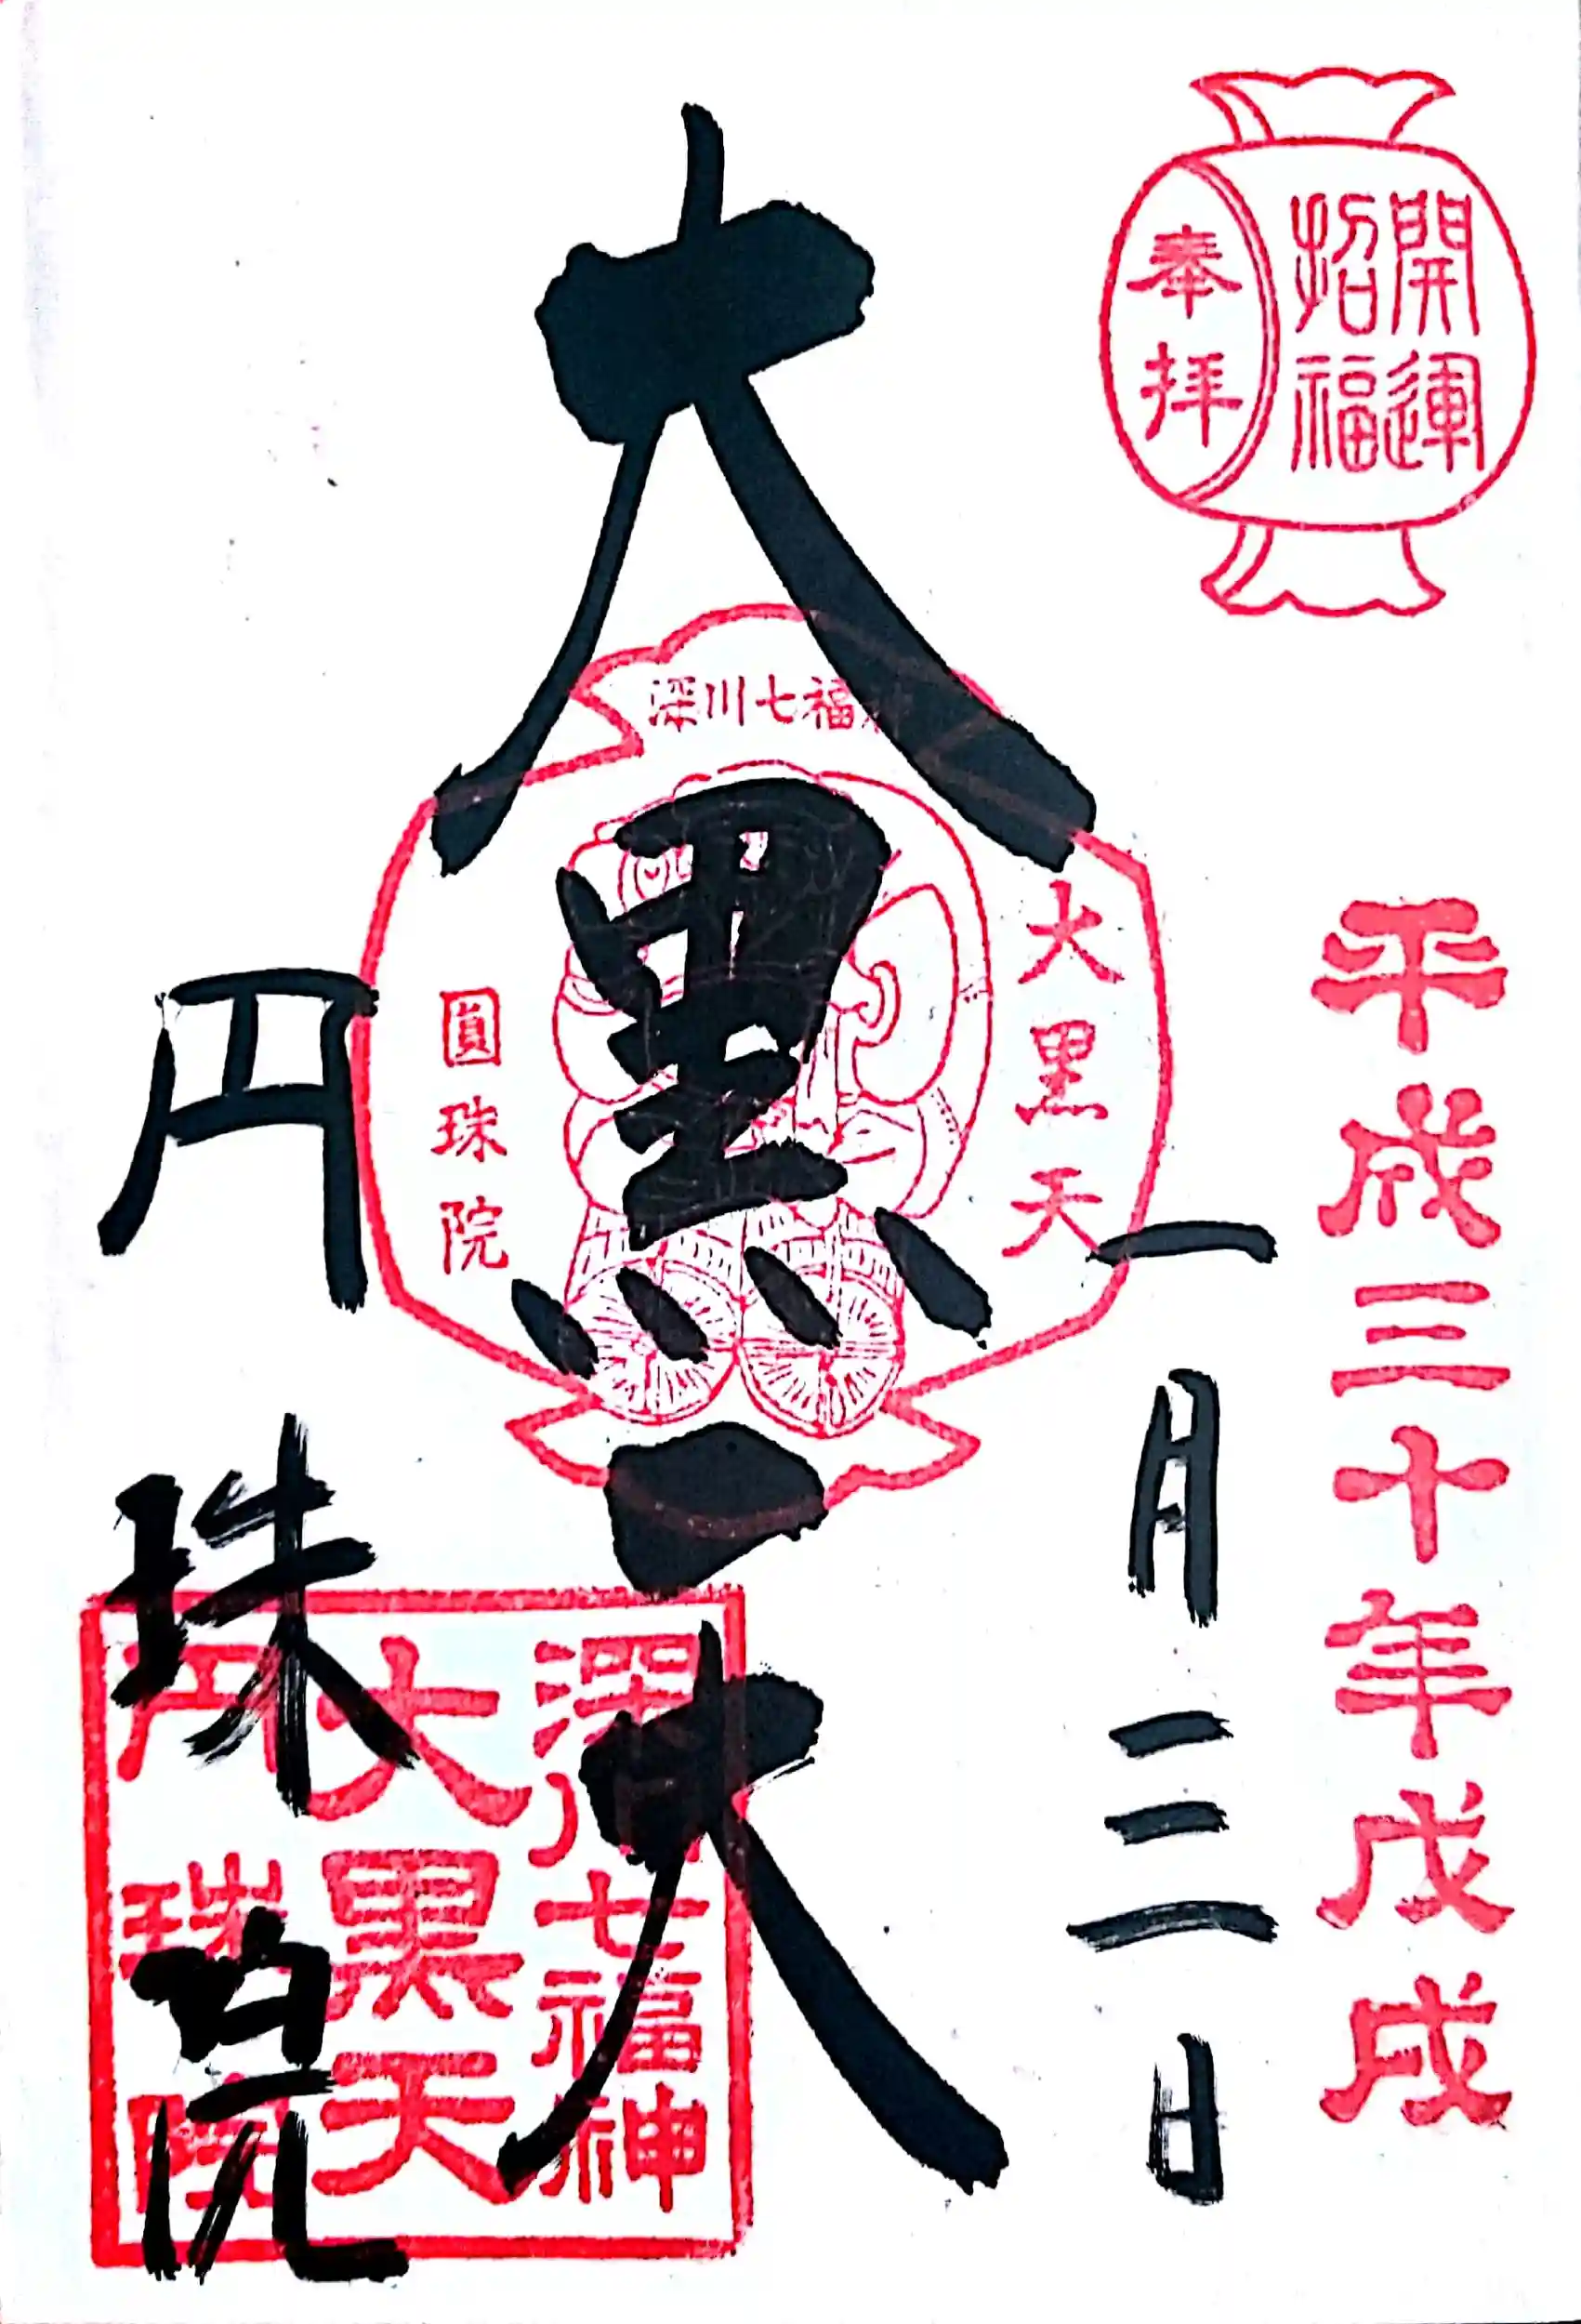 開運
招福
奉拝
平成三十年戊戌
一月三日
大黒天
深川七福神
大黒天
圓珠院
円珠院
深川七福神
大黒天
円珠院